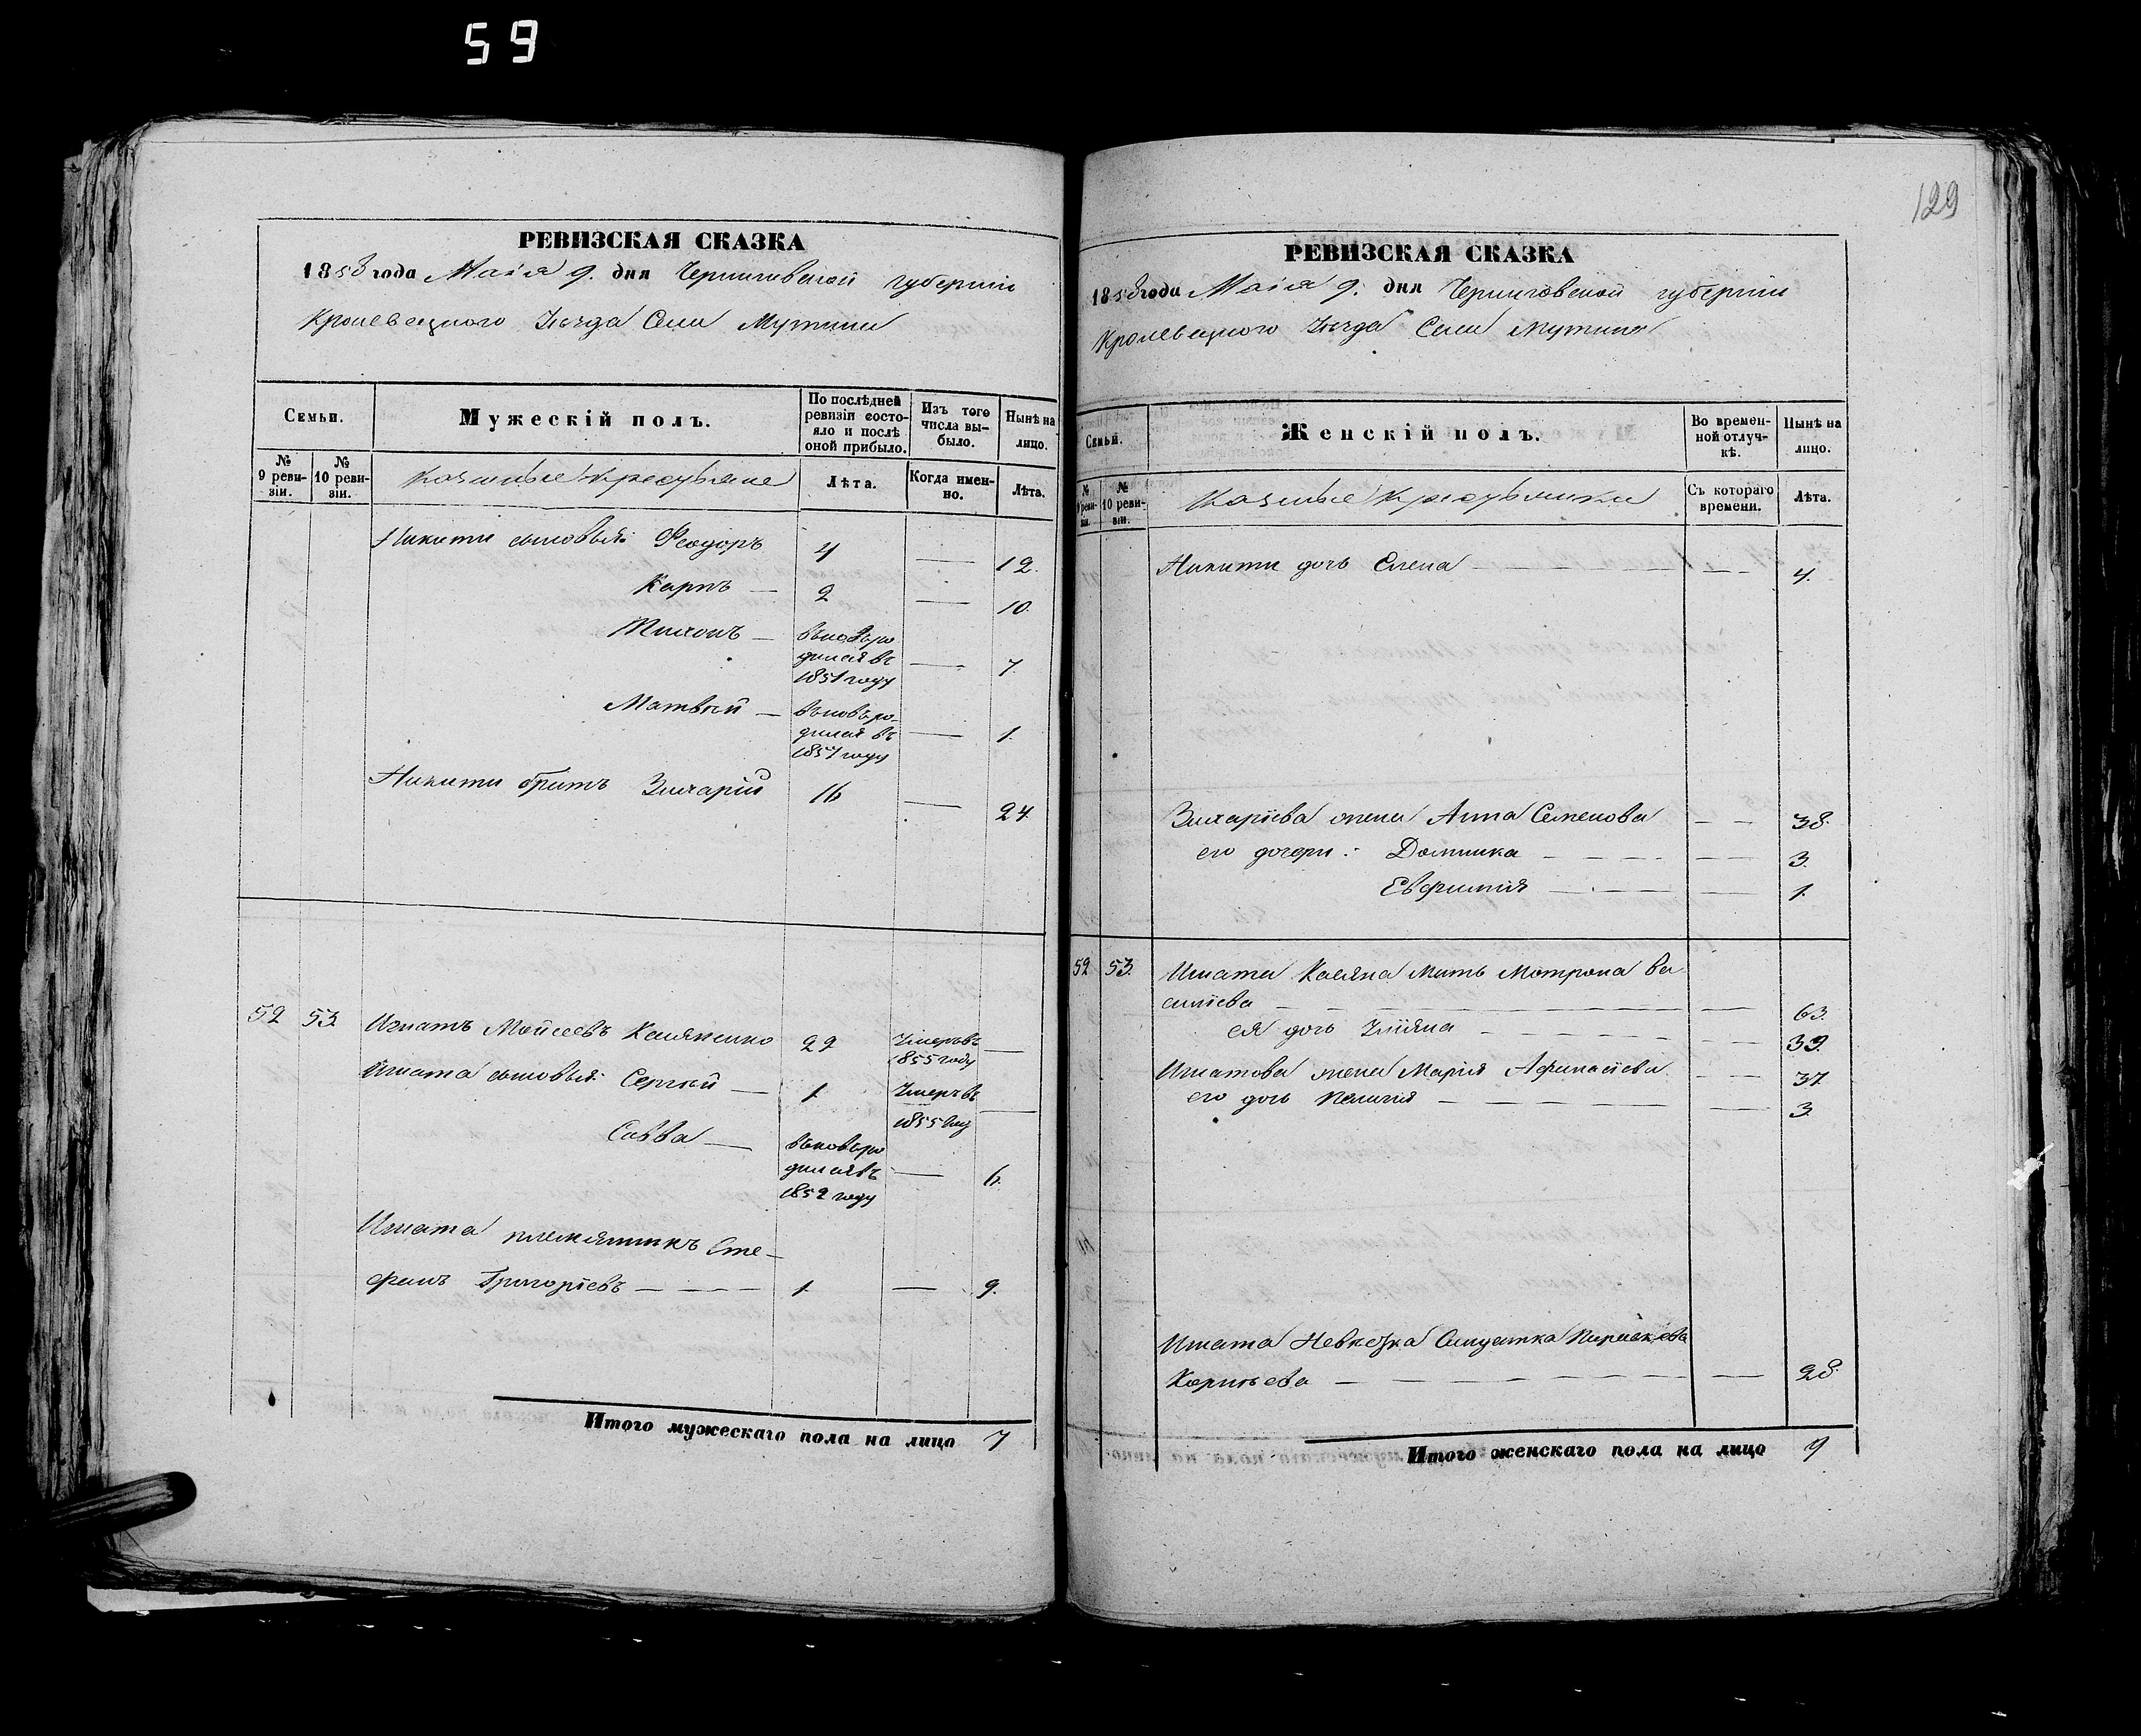 59
РЕВИЗСКАЯ СКАЗКА
1858 года Маія 9. дня Черниговской губерніи
Кролевецкого Уезда Села Мутина
Семьи.
Мужескій полъ.
По послѣдней ревизіи состояло и послѣ оной прибыло.
Изъ того числа выбыло.
Нынѣ на лицо.
№ 9 ревизіи.
№ 10 ревизіи.
Казенные Крестьяне
Лѣта.
Когда именно.
Лѣта.
Никити сыновья: Феодоръ 4 — 12.
Карпъ — 2 — 10.
Тихонъ — вновь ро
дился въ — 7.
1851 году
Матвей — вновь ро-
дился въ — 1.
1857 году
Никити братъ Захарій 16 — 24.
52 53. Игнатъ Моисеевъ Касяненко 22 Умеръ въ 1855 году —
Игната сыновья: Сергей — 1. Умеръ въ 1855 году —
Савва — вновь ро
дился въ — 6.
1852 году
Игната племянникъ Сте-
фанъ Григоріевъ — — — — 1. — 9.
Итого мужескаго пола на лицо 7
129
РЕВИЗСКАЯ СКАЗКА
1858 года Маія 9. дня Черниговской губерніи
Кролевецкого Уезда Села Мутина
Семьи.
Женскій полъ.
Во временной отлучкѣ.
Нынѣ на лицо.
№ 9 ревизіи.
№ 10 ревизіи.
Казенные Крестьянки
Съ котораго времени.
Лѣта.
Никити дочь Елена — — — 4.
Захаріева жена Анна Семенова — — 38.
его дочери: Домника — — — 3.
Евфимия — — — 1.
52 53. Игната Касяна Мать Мотрона Ва
силіева — — — 63.
ея дочь Уліяна — — — 39.
Игнатова жена Марія Афанасіева — — 37.
его дочь Пелагия — — — 3.
Игната Невестка Солдатка Параскева
Карпъева — — — 28.
Итого женскаго пола на лицо 9